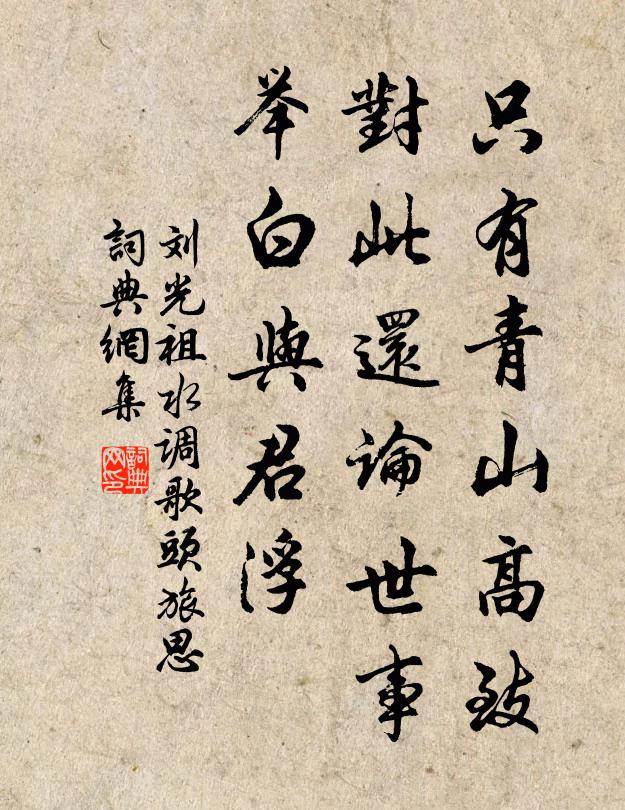 只有青山高致
對此還論世事
举白與君浮
刘光祖水调歌頭旅思
詞典網集
詞典网印